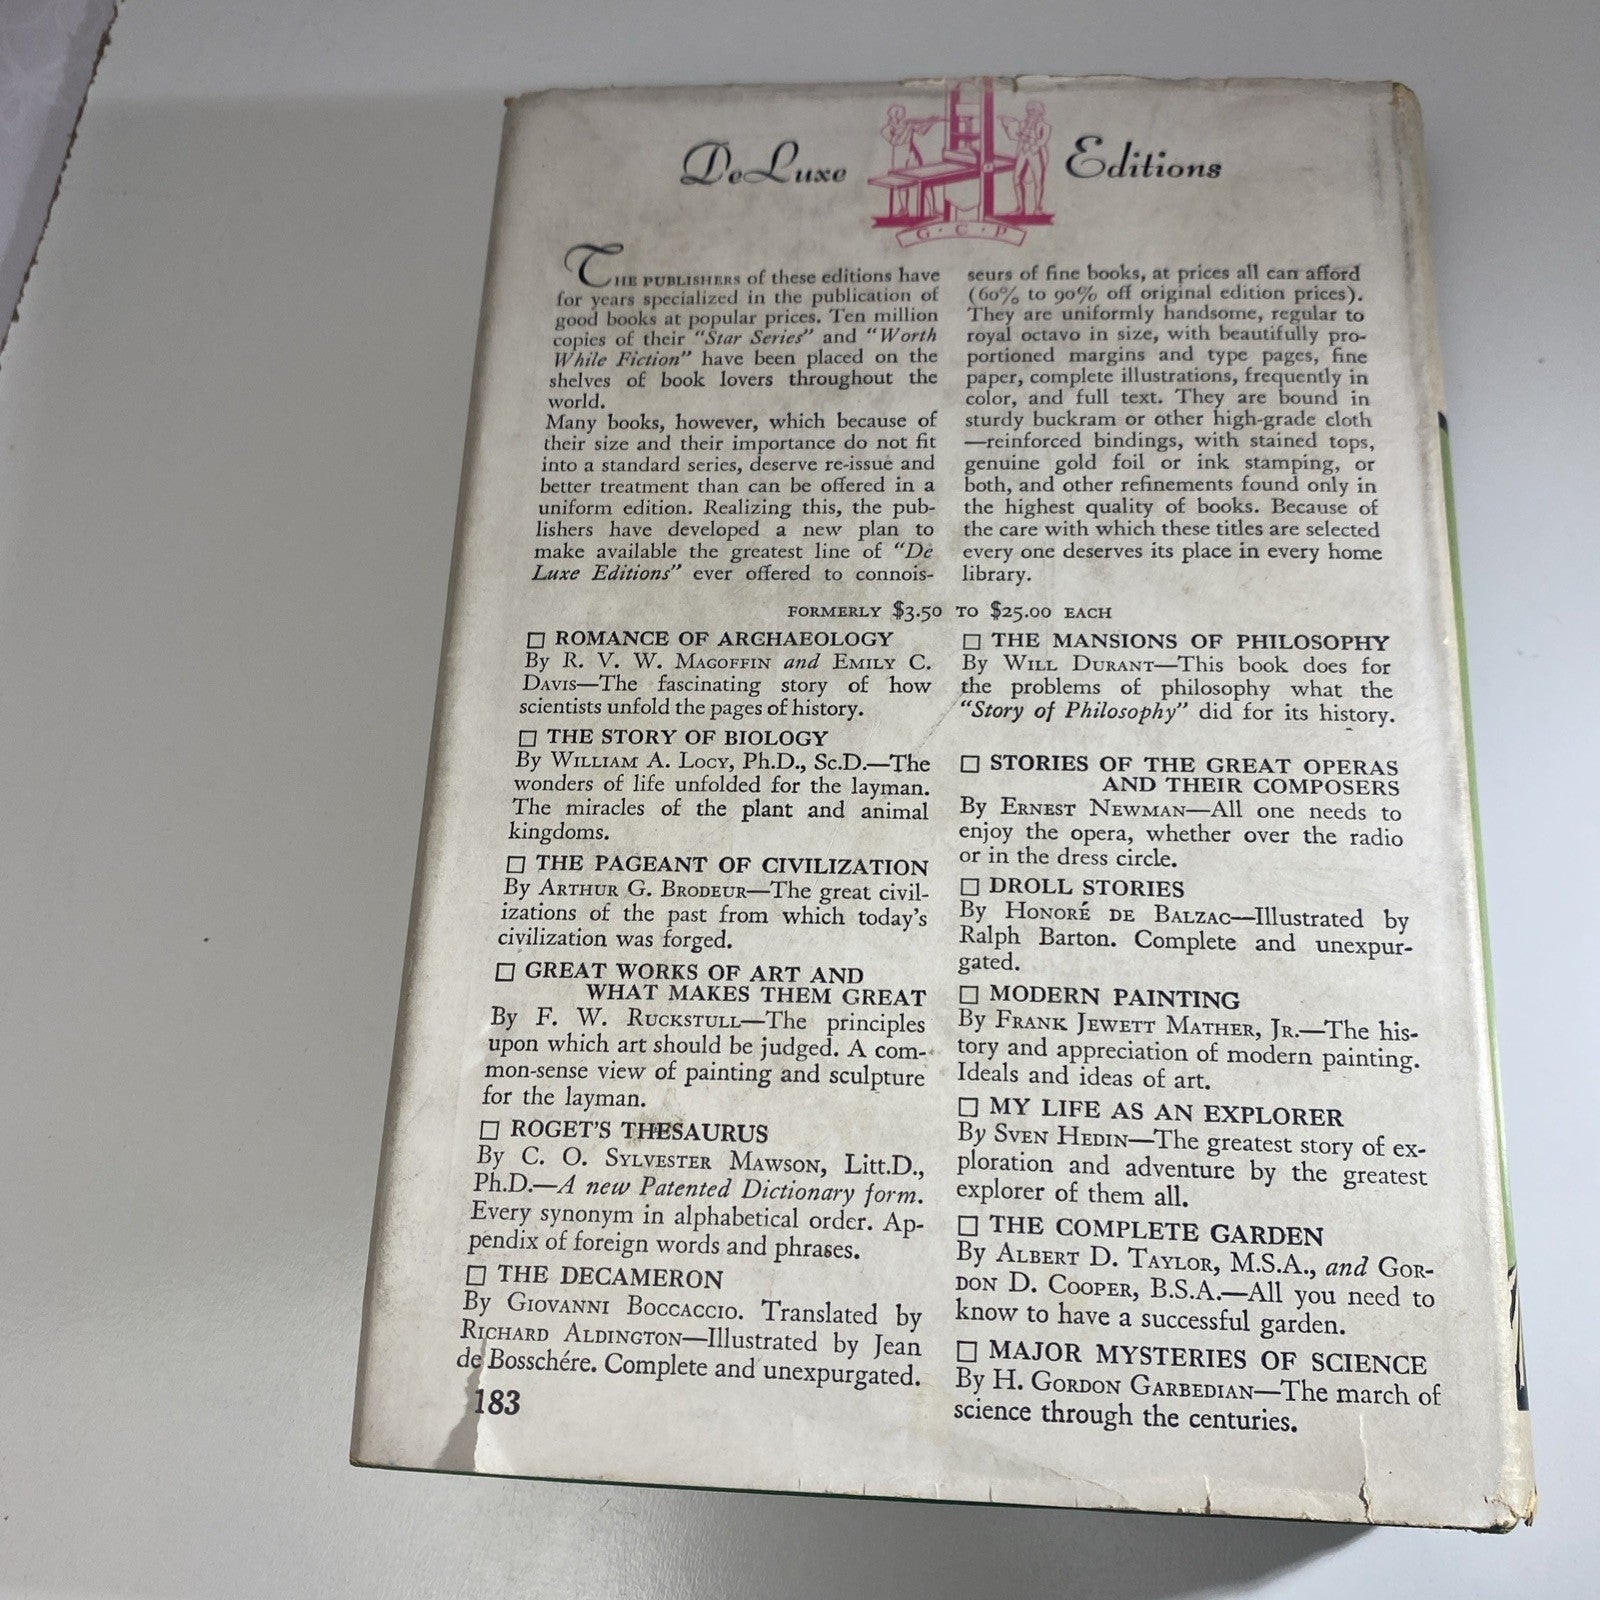 DeLuxe Editions
G·C·P
THE PUBLISHERS of these editions have
for years specialized in the publication of
good books at popular prices. Ten million
copies of their "Star Series" and "Worth
While Fiction" have been placed on the
shelves of book lovers throughout the
world.
Many books, however, which because of
their size and their importance do not fit
into a standard series, deserve re-issue and
better treatment than can be offered in a
uniform edition. Realizing this, the pub-
lishers have developed a new plan to
make available the greatest line of "De
Luxe Editions" ever offered to connois-
seurs of fine books, at prices all can afford
(60% to 90% off original edition prices).
They are uniformly handsome, regular to
royal octavo in size, with beautifully pro-
portioned margins and type pages, fine
paper, complete illustrations, frequently in
color, and full text. They are bound in
sturdy buckram or other high-grade cloth
—reinforced bindings, with stained tops,
genuine gold foil or ink stamping, or
both, and other refinements found only in
the highest quality of books. Because of
the care with which these titles are selected
every one deserves its place in every home
library.
FORMERLY $3.50 TO $25.00 EACH
☐ ROMANCE OF ARCHAEOLOGY
By R. V. W. MAGOFFIN and EMILY C.
DAVIS—The fascinating story of how
scientists unfold the pages of history.
☐ THE STORY OF BIOLOGY
By WILLIAM A. LOCY, Ph.D., Sc.D.—The
wonders of life unfolded for the layman.
The miracles of the plant and animal
kingdoms.
☐ THE PAGEANT OF CIVILIZATION
By ARTHUR G. BRODEUR—The great civil-
izations of the past from which today's
civilization was forged.
☐ GREAT WORKS OF ART AND
WHAT MAKES THEM GREAT
By F. W. RUCKSTULL—The principles
upon which art should be judged. A com-
mon-sense view of painting and sculpture
for the layman.
☐ ROGET'S THESAURUS
By C. O. SYLVESTER MAWSON, Litt.D.,
Ph.D.—A new Patented Dictionary form.
Every synonym in alphabetical order. Ap-
pendix of foreign words and phrases.
☐ THE DECAMERON
By GIOVANNI BOCCACCIO. Translated by
RICHARD ALDINGTON—Illustrated by Jean
de Bosschére. Complete and unexpurgated.
183
☐ THE MANSIONS OF PHILOSOPHY
By WILL DURANT—This book does for
the problems of philosophy what the
"Story of Philosophy" did for its history.
☐ STORIES OF THE GREAT OPERAS
AND THEIR COMPOSERS
By ERNEST NEWMAN—All one needs to
enjoy the opera, whether over the radio
or in the dress circle.
☐ DROLL STORIES
By HONORÉ DE BALZAC—Illustrated by
Ralph Barton. Complete and unexpur-
gated.
☐ MODERN PAINTING
By FRANK JEWETT MATHER, JR.—The his-
tory and appreciation of modern painting.
Ideals and ideas of art.
☐ MY LIFE AS AN EXPLORER
By SVEN HEDIN—The greatest story of ex-
ploration and adventure by the greatest
explorer of them all.
☐ THE COMPLETE GARDEN
By ALBERT D. TAYLOR, M.S.A., and GOR-
DON D. COOPER, B.S.A.—All you need to
know to have a successful garden.
☐ MAJOR MYSTERIES OF SCIENCE
By H. GORDON GARBEDIAN—The march of
science through the centuries.